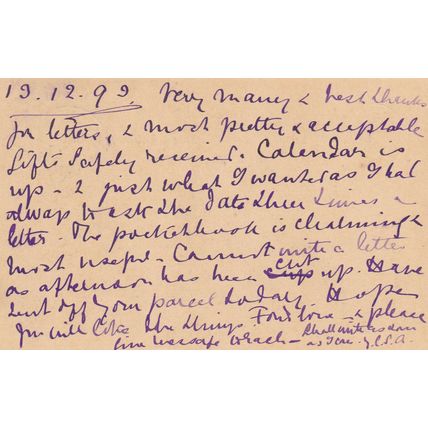 19.12.99. Very many & best thanks
for letters, & most pretty & acceptable
gift safely received. Calendar is
up - & just what I wanted as I had
always to ask the date three times a
letter. The pocketbook is charming &
most useful - Cannot write a letter
as afternoon has been cut up. Have
sent off your parcel today. Hope
you will like the things. Fond love - & please
give message to each - Shall write as soon
as I can. J.C.S.A.